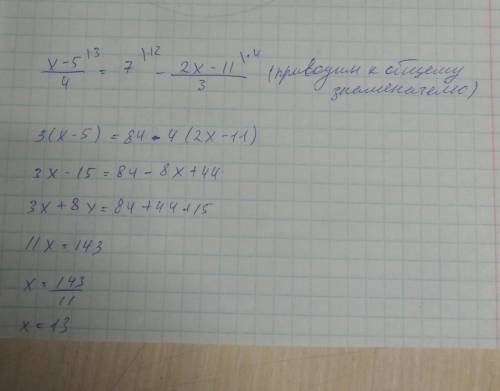 (x-5)/4 \·3 = 7 \·12 - (2x-11)/3 \·4 (приводим к общему
знаменателю)
3(x-5) = 84 - 4(2x-11)
3x-15 = 84 - 8x+44
3x+8x = 84+44+15
11x = 143
x = 143/11
x = 13